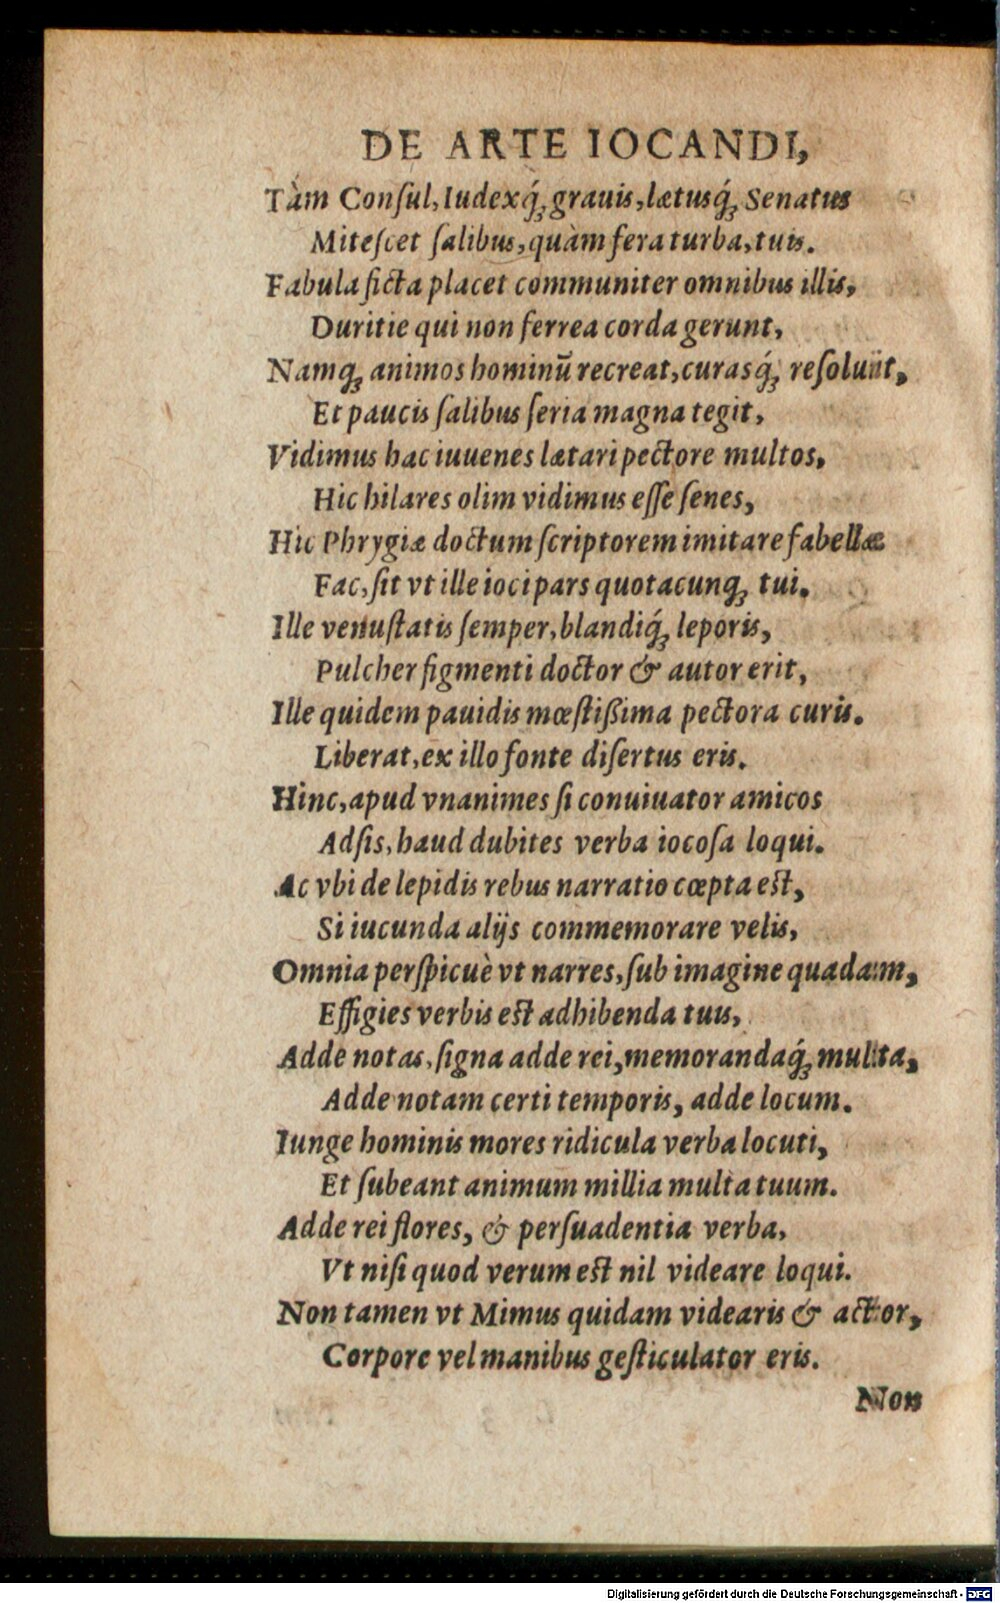 DE ARTE IOCANDI,
Tàm Conſul, Iudexq́ꝫ grauis, lætusq́ꝫ Senatus
Miteſcet ſalibus, quàm fera turba, tuis.
Fabula ficta placet communiter omnibus illis,
Duritie qui non ferrea corda gerunt,
Namqꝫ animos hominũ recreat, curasq́ꝫ reſoluit,
Et paucis ſalibus ſeria magna tegit,
Vidimus hac iuuenes lætari pectore multos,
Hic hilares olim vidimus eſſe ſenes,
Hic Phrygiæ doctum ſcriptorem imitare fabellæ
Fac, ſit vt ille ioci pars quotacunqꝫ tui.
Ille venuſtatis ſemper, blandiq́ꝫ leporis,
Pulcher figmenti doctor & autor erit,
Ille quidem pauidis mœſtißima pectora curis.
Liberat, ex illo fonte diſertus eris.
Hinc, apud vnanimes ſi conuiuator amicos
Adſis, haud dubites verba iocoſa loqui.
Ac vbi de lepidis rebus narratio cœpta eſt,
Si iucunda alijs commemorare velis,
Omnia perſpicuè vt narres, ſub imagine quadam,
Effigies verbis eſt adhibenda tuis,
Adde notas, ſigna adde rei, memorandaq́ꝫ multa,
Adde notam certi temporis, adde locum.
Iunge hominis mores ridicula verba locuti,
Et ſubeant animum millia multa tuum.
Adde rei flores, & perſuadentia verba,
Vt niſi quod verum eſt nil videare loqui.
Non tamen vt Mimus quidam videaris & actor,
Corpore vel manibus geſticulator eris.
Non
Digitalisierung gefördert durch die Deutsche Forschungsgemeinschaft - DFG